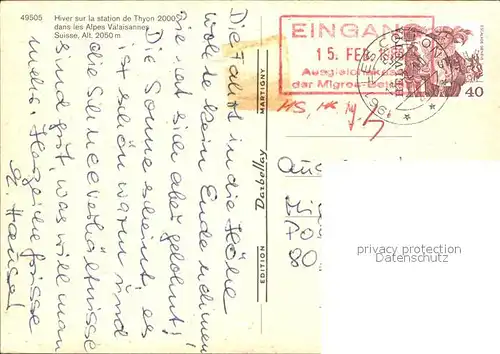 49505
Hiver sur la station de Thyon 2000
dans les Alpes Valaisannes
Suisse, Alt. 2050 m
Die Fahrt in die Höhe
wollte kein Ende nehmen
Sie hat sich aber gelohnt!
Die Sonne scheint, es
ist schön warm und
die Schneeverhältnisse
sind gut, was will man
mehr. Herzliche Grüsse
Hansel
EDITION Darbellay MARTIGNY
EINGANG
15. FEB.
Ausgleichskasse
der Migros-Betriebe
HELVETIA
40
HS,
Aus
Mig
Pos
80
privacy protection
watermark